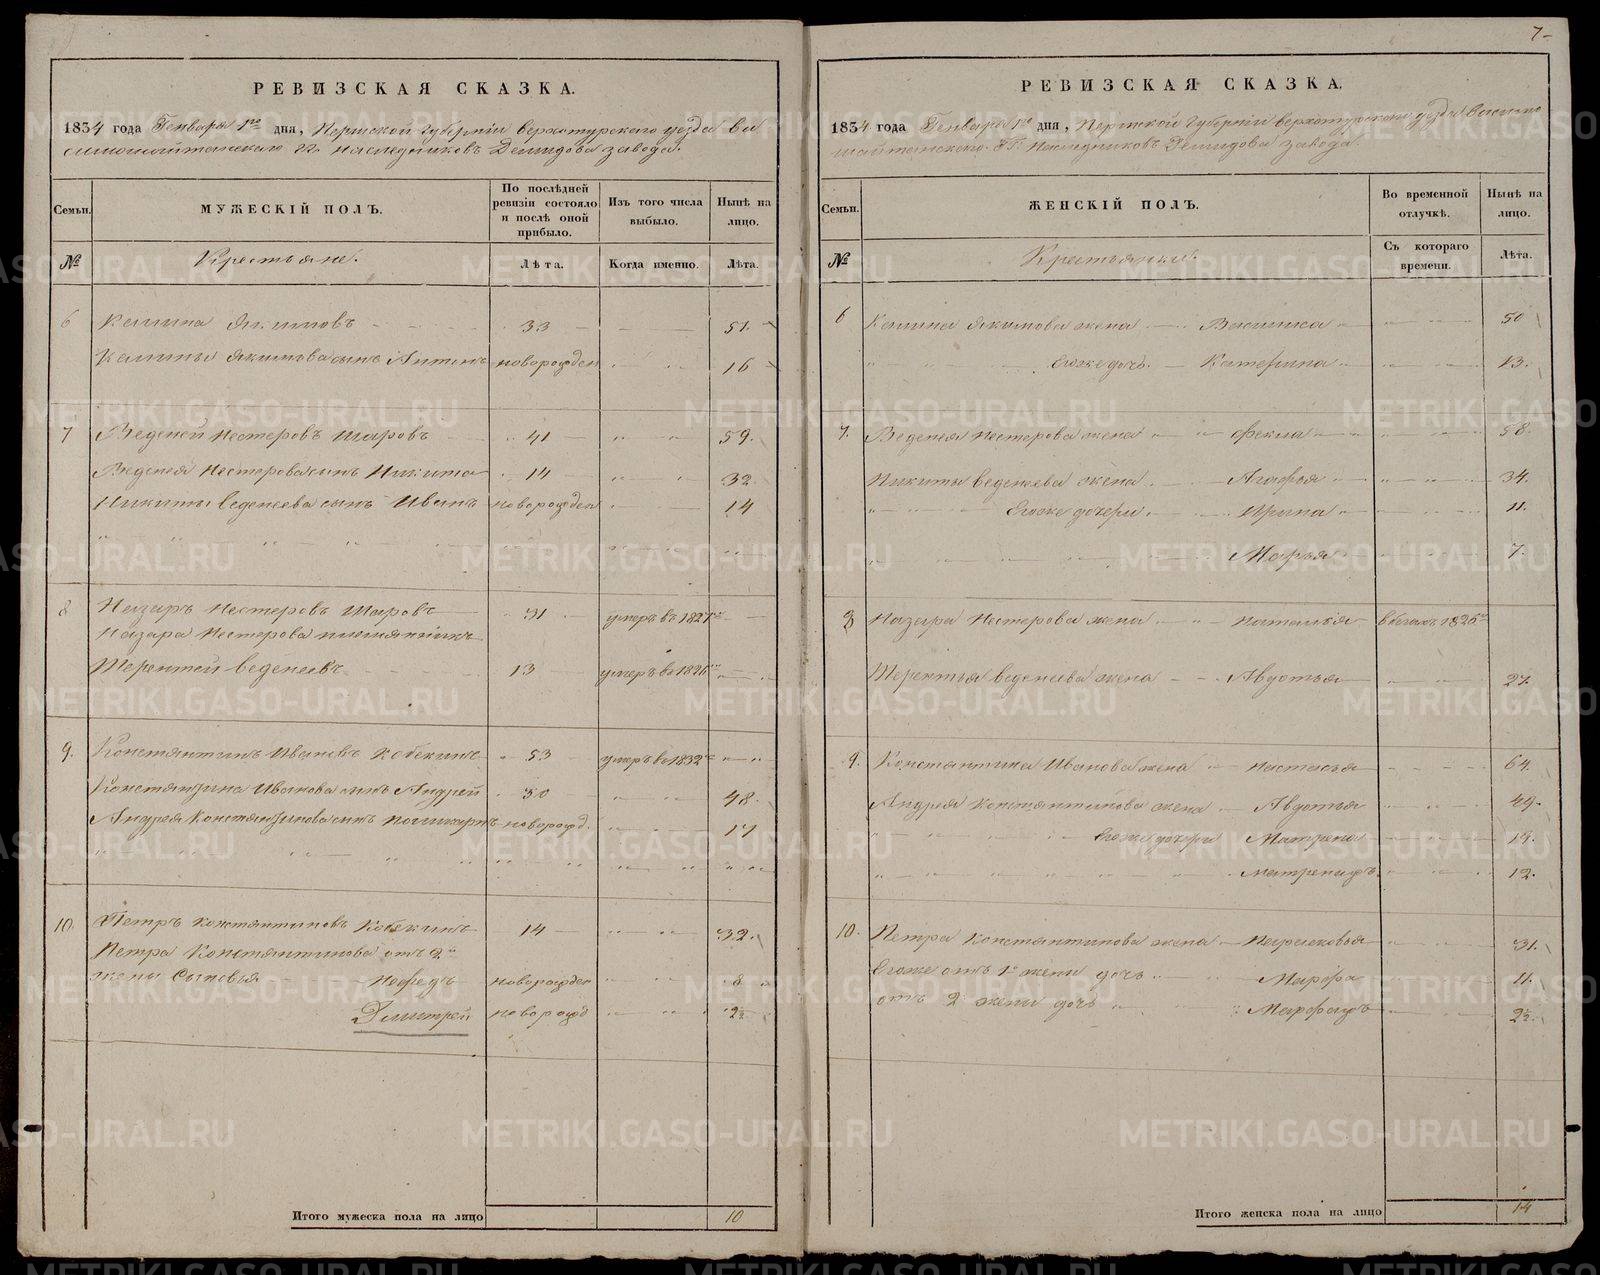 7
РЕВИЗСКАЯ СКАЗКА.
1834 года Генваря 1го дня, Пермской Губернiи верхотурского уезда ва
симошайтанскаго Гг. наследниковъ Демидова завода.
Семьи.
МУЖЕСКІЙ ПОЛЪ.
По послѣдней ревизіи состояло и послѣ оной прибыло.
Изъ того числа выбыло.
Нынѣ на лицо.
№
Крестьяне.
Лѣта.
Когда именно.
Лѣта.
6 Калина Якимовъ 33 51.
Калины Якимова сынъ Антонъ новорожден 16
7 Веденей Нестеровъ Шаровъ 41 59.
Веденея Нестерова сынъ Никита 14 32.
Никиты веденеева сынъ Иванъ новорожден 14
8 Назаръ Нестеровъ Шаровъ 31 умеръ въ 1827го
Назара Нестерова племянникъ
Терентей веденеевъ 13 умеръ во 1826го
9. Константинъ Ивановъ Кобекинъ 53 умеръ во 1832го
Константина Иванова сынъ Андрей 30 48.
Андрея Константинова сынъ новорожд. 17
10. Петръ Константиновъ Кобекинъ 14 32.
Петра Константинова отъ 2й
жены сыновья новорожден 8
Дмитрей новорожд 2½
Итого мужеска пола на лицо 10
РЕВИЗСКАЯ СКАЗКА.
1834 года Генваря 1го дня, Пермской Губернiи верхотурского уезда Васимо
шайтанскаго Гг. Наследниковъ Демидова завода.
Семьи.
ЖЕНСКІЙ ПОЛЪ.
Во временной отлучкѣ.
Нынѣ на лицо.
№
Крестьянки.
Съ котораго времени.
Лѣта.
6 Калина Якимова жена Василиса 50
Егоже дочь Катерина 13.
7. Веденея Нестерова жена Фекла 58.
Никиты веденеева жена Агафья 34.
Егоже дочери Ирина 11.
Марья 7.
8 Назара Нестерова жена Наталья в бегахъ 1826го
Терентья веденеева жена Авдотья 27.
9. Константина Иванова жена Настасья 64.
Андрея Константинова жена Авдотья 49.
Егоже дочери Матрена 19.
12.
10. Петра Константинова жена Парасковья 31.
Егоже отъ 1й жены дочь Марфа 11.
отъ 2й жены дочь 2½.
Итого женска пола на лицо 14
METRIKI.GASO-URAL.RU